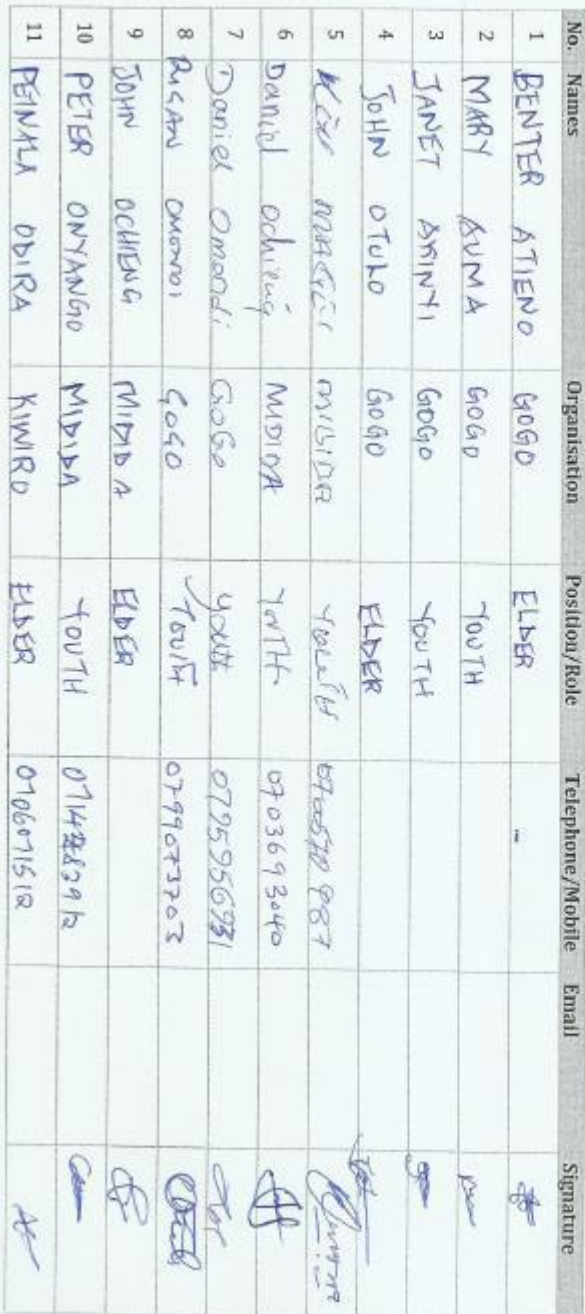 No. Names Organisation Position/Role Telephone/Mobile Email Signature
1 BENTER ATIENO GOGO ELDER -
2 MARY AUMA GOGO YOUTH
3 JANET AKINYI GOGO YOUTH
4 JOHN OTULO GOGO ELDER
5
6 Daniel Ochieng MIDIDA YOUTH 0703693040
7 Daniel Omondi GOGO Youth
8 OMONDI GOGO YOUTH 0799073703
9 JOHN OCHIENG MIDIDA ELDER
10 PETER ONYANGO MIDIDA YOUTH
11 ODIRA KIWIRO ELDER 0706071512